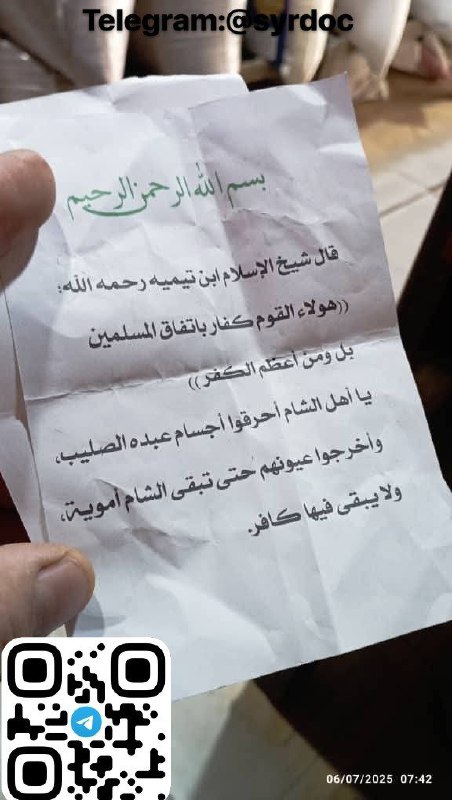 Telegram:@syrdoc
بسم الله الرحمن الرحيم
قال شيخ الإسلام ابن تيميه رحمه الله:
((هولاء القوم كفار باتفاق المسلمين
بل ومن أعظم الكفر))
يا أهل الشام أحرقوا أجسام عبده الصليب،
وأخرجوا عيونهم حتى تبقى الشام أموية،
ولا يبقى فيها كافر.
06/07/2025 07:42